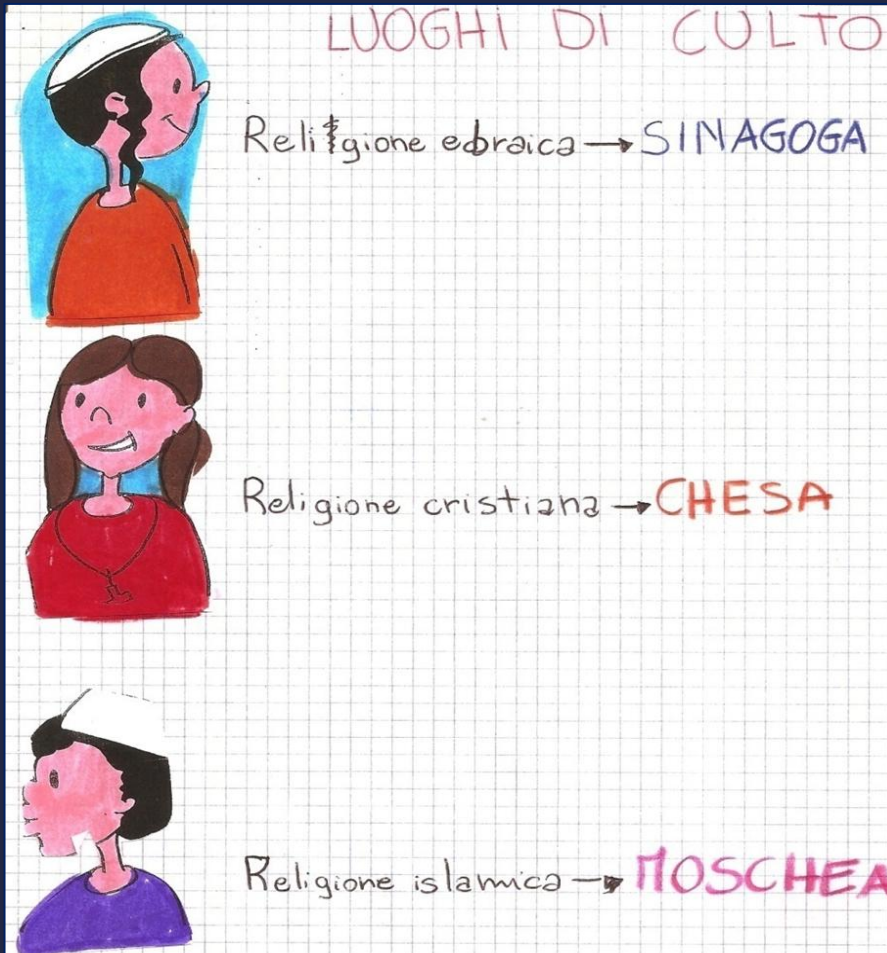 LUOGHI DI CULTO
Religione ebraica → SINAGOGA
Religione cristiana → CHESA
Religione islamica → MOSCHEA